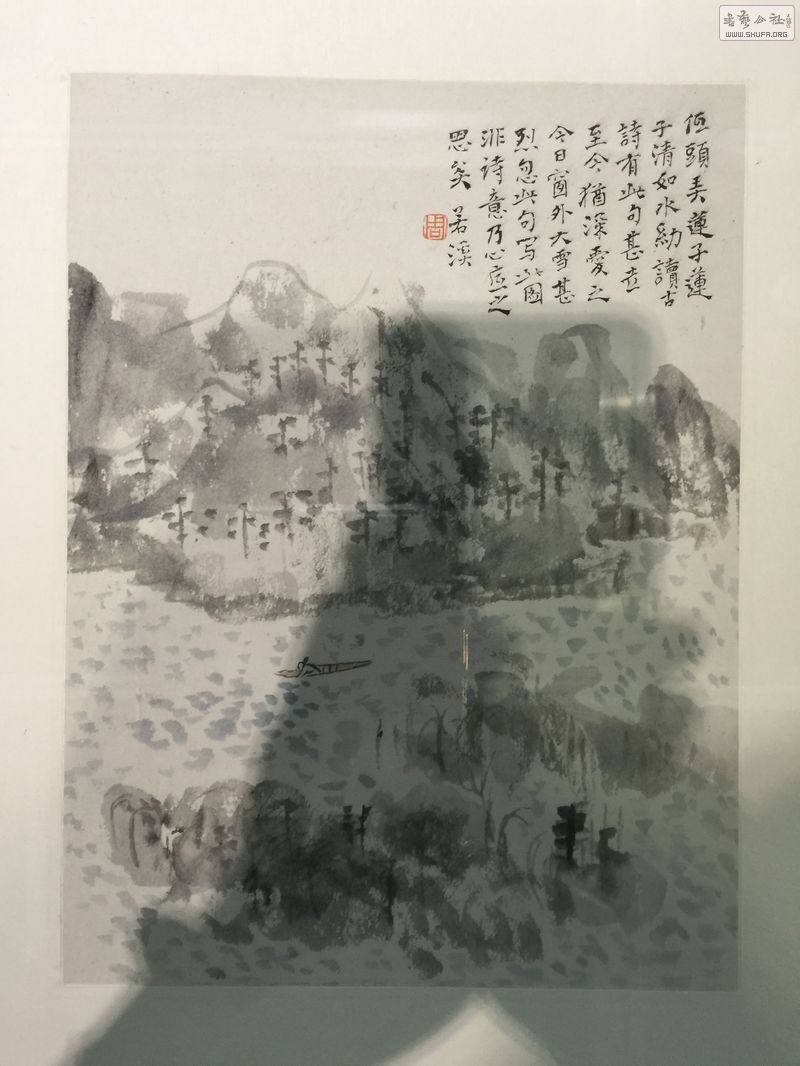 低頭弄蓮子蓮
子清如水幼讀古
詩有此句甚喜
至今猶深愛之
今日窗外大雪甚
烈忽此句写此图
非诗意乃心底之
思矣 若溪
書藝公社
WWW.SHUFA.ORG